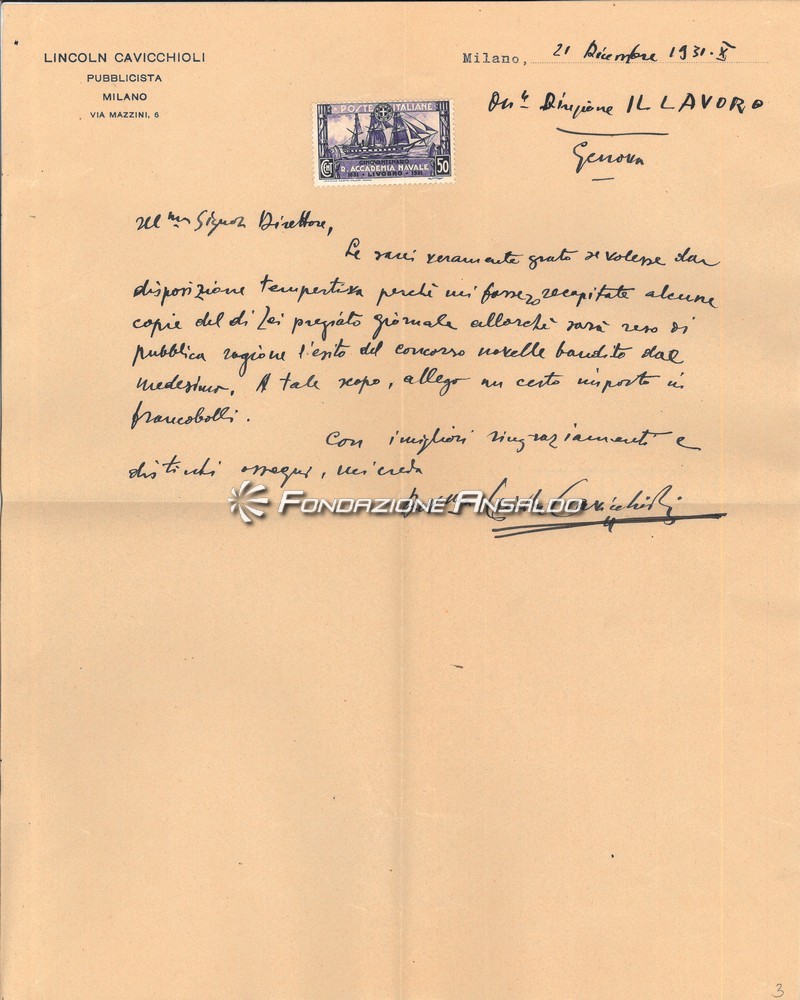 LINCOLN CAVICCHIOLI
PUBBLICISTA
MILANO
VIA MAZZINI, 6
Milano, 21 Dicembre 1931.X
On.le Direzione IL LAVORO
Genova
POSTE ITALIANE
CINQUANTENARIO
R. ACCADEMIA NAVALE
1881 LIVORNO 1931
CENT 50
Ill.mo Signor Direttore,
Le sarei veramente grato se volesse dar
disposizione tempestiva perché mi fossero recapitate alcune
copie del di Lei pregiato giornale allorché sarà reso di
pubblica ragione l'esito del concorso novelle bandito dal
medesimo. A tale scopo, allego un certo importo in
francobolli.
Con i migliori ringraziamenti e
distinti ossequi, mi creda
Lincoln Cavicchioli
FONDAZIONE ANSALDO
3